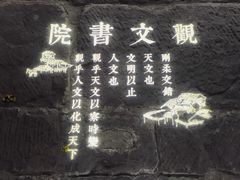 觀文書院
剛柔交錯
天文也
文明以止
人文也
觀乎天文以察時變
觀乎人文以化成天下